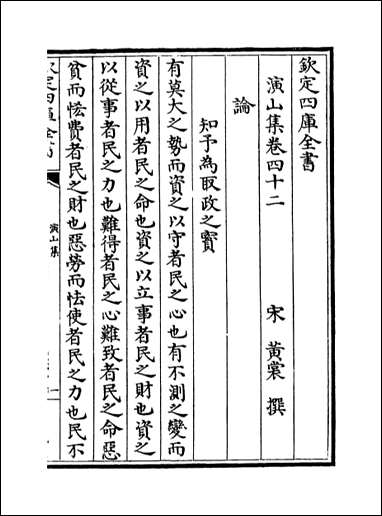 欽定四庫全書
演山集卷四十二
宋 黃裳 撰
論
知予為取政之寳
有莫大之勢而資之以守者民之心也有不測之變而
資之以用者民之命也資之以立事者民之財也資之
以從事者民之力也難得者民之心難致者民之命惡
貧而恡費者民之財也惡勞而怯使者民之力也民不
欽定四庫全書
演山集
一